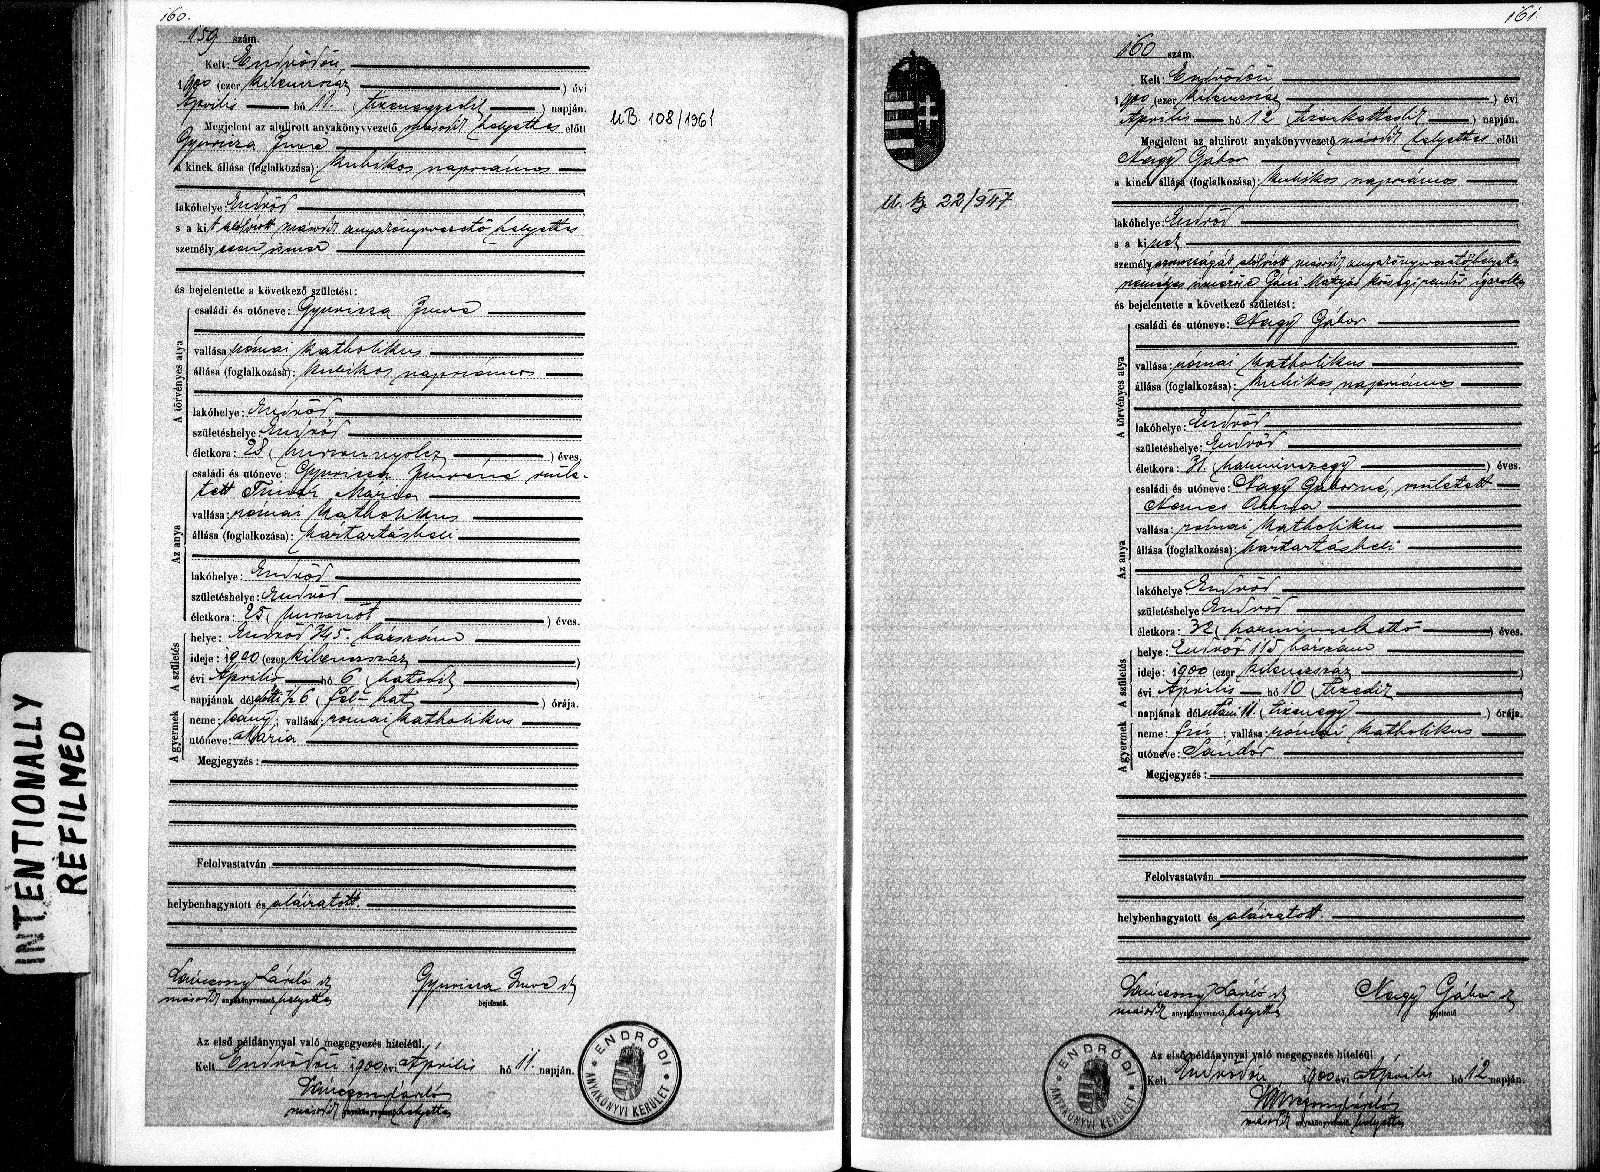 160.
159 szám.
Kelt: Endrődön,
1900 (ezer kilencszáz ) évi
Április hó 11. (tizenegyedik ) napján.
Megjelent az alulirott anyakönyvvezető másodk helyettes előtt
Gyuricza Imre
a kinek állása (foglalkozása): kubikos napszámos
lakóhelye: Endrőd
s a kit alólirott másodk anyakönyvvezető helyettes
személyesen ismer
és bejelentette a következő születést:
A törvényes atya
családi és utóneve: Gyuricza Imre
vallása római katholikus
állása (foglalkozása): kubikos napszámos
lakóhelye: Endrőd
születéshelye: Endrőd
életkora: 28. (huszonnyolcz ) éves.
Az anya
családi és utóneve: Gyuricza Imréné szüle-
tett Timár Mária
vallása: római katholikus
állása (foglalkozása): háztartásbeli
lakóhelye: Endrőd
születéshelye: Endrőd
életkora: 25. (huszonöt ) éves.
A születés
helye: Endrőd 345. házszám
ideje: 1900 (ezer kilencszáz )
évi Április hó 6 (hatodik )
napjának délelőtti 1/2 6 (fél-hat ) órája.
A gyermek
neme: leány; vallása: római katholikus
utóneve: Mária
Megjegyzés:
Felolvastatván
helybenhagyatott és aláiratott.
László
Gyuricza Imre
másodk anyakönyvvezető helyettes
bejelentő.
Az első példánynyal való megegyezés hiteléül.
Kelt Endrődön 1900 évi Április hó 11. napján.
másodk anyakönyvvezető helyettes
ENDRŐDI
ANYAKÖNYVI KERÜLET
U.B. 108/1961
INTENTIONALLY
REFILMED
161.
22/947
160 szám.
Kelt: Endrődön
1900 (ezer kilencszáz ) évi
Április hó 12 (tizenkettedik ) napján.
Megjelent az alulirott anyakönyvvezető másodk helyettes előtt
Nagy Gábor
a kinek állása (foglalkozása): kubikos napszámos
lakóhelye: Endrőd
s a kinek
személyazonosságát alólirott másodk anyakönyvvezetőhelyettes
személyes ismerőse Mátyás községi rendőr igazolta
és bejelentette a következő születést:
A törvényes atya
családi és utóneve: Nagy Gábor
vallása: római katholikus
állása (foglalkozása): kubikos napszámos
lakóhelye: Endrőd
születéshelye: Endrőd
életkora: 31. (harminczegy ) éves.
Az anya
családi és utóneve: Nagy Gáborné, született
Nemes Anna
vallása: római katholikus
állása (foglalkozása): háztartásbeli
lakóhelye Endrőd
születéshelye Endrőd
életkora: 32 (harminczkettő ) éves.
A születés
helye: Endrőd 115 házszám
ideje: 1900 (ezer kilencszáz )
évi Április hó 10 (tizedik )
napjának délutáni 11. (tizenegy ) órája.
A gyermek
neme: fiu; vallása: római katholikus
utóneve: Sándor
Megjegyzés:
Felolvastatván
helybenhagyatott és aláiratott.
László
Nagy Gábor
másodk anyakönyvvezető helyettes
bejelentő
Az első példánynyal való megegyezés hiteléül
Kelt Endrődön 1900 évi Április hó 12 napján.
másodk anyakönyvvezető helyettes
ENDRŐDI
ANYAKÖNYVI KERÜLET